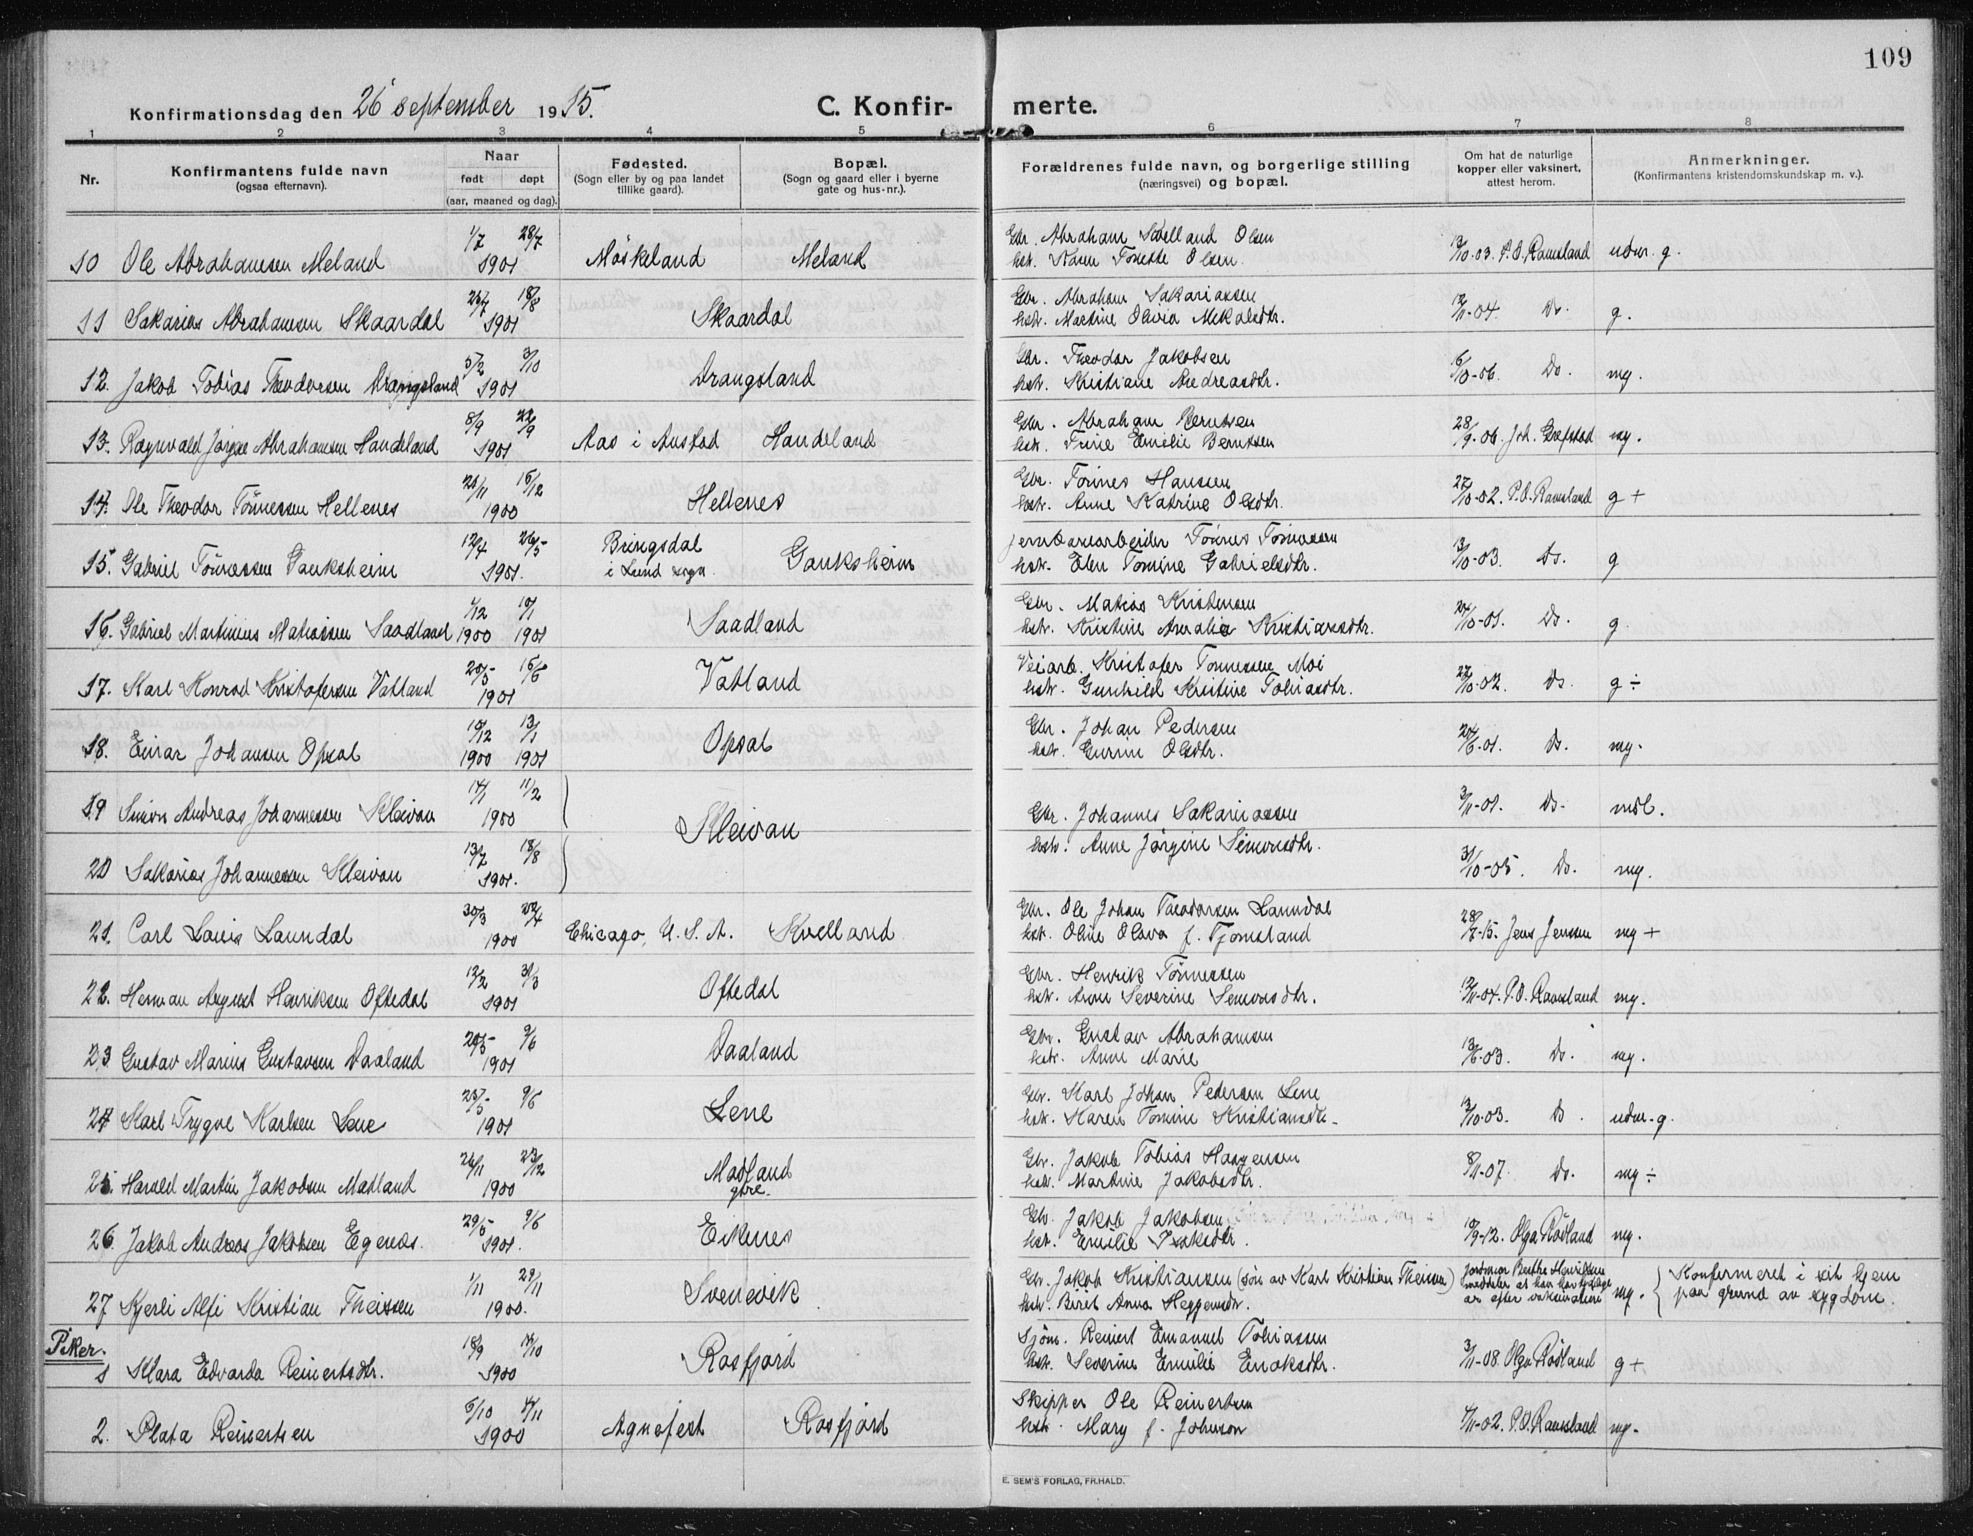 109
Konfirmationsdag den 26 september 1915.
C. Konfir- merte.
1 2 3 4 5 6 7 8
Nr.
Konfirmantens fulde navn
(ogsaa efternavn).
Naar
født døpt
(aar, maaned og dag).
Fødested.
(Sogn eller by og paa landet
tillike gaard).
Bopæl.
(Sogn og gaard eller i byerne
gate og hus-nr.).
Forældrenes fulde navn, og borgerlige stilling
(næringsvei) og bopæl.
Om hat de naturlige
kopper eller vaksinert,
attest herom.
Anmerkninger.
(Konfirmantens kristendomskundskap m. v.).
10 Ole Abrahamsen Meland 1/7 28/7 1901 Møskeland Meland Gbr. Abraham Olsen
hstr. Tonette Olsen. 13/10-03. P.O. Ramsland udm. g.
11 Sakarias Abrahamsen Skaardal 25/7 18/8 1901 Skaardal Gbr. Abraham Sakariassen
hstr. Martine Olivia Mikalsdtr. 12/11-04. Do. g.
12. Jakob Tobias Theodorsen Drangsland 5/2 3/10 1901 Drangsland Gbr. Theodor Jakobsen
hstr. Kristiane Andreasdtr. 6/10-06. Do. mg.
13. Ragnvald Jørgen Abrahamsen Handeland 8/9 22/9 1901 Aas i Austad Handeland Gbr. Abraham Berntsen
hstr. Trine Emilie Berntsen 28/9-06. Joh. Grefstad mg.
14. Ole Theodor Tønnessen Hellenes 21/11 16/12 1900 Hellenes Gbr. Tønnes Hansen
hstr. Anne Katrine Olsdtr. 27/10-02. P.O. Ramsland g +
15. Gabriel Tønnessen Gauksheim 12/4 26/5 1901. Bringsdal
i Lund sogn. Gauksheim Jernbanearbeider Tønnes Tønnessen
hstr. Elen Tomine Gabrielsdtr. 13/10-03. Do. g
16. Gabriel Martinius Mathiassen Saadland 1/12 1900 10/1 1901 Saadland Gbr. Matias Kristensen
hstr. Kristine Amalie Kristiansdtr. 24/10-01. Do. g.
17. Karl Konrad Kristofersen Vatland 20/5 16/6 1901 Vatland Veiarb. Kristofer Tønnessen Moi
hstr. Gunhild Kristine Tobiasdtr. 27/10-02. Do. g ÷
18. Einar Johansen Opsal 10/12 1900 13/1 1901 Opsal Gbr. Johan Pedersen
hstr. Gurine Olsdtr. 24/6-01. Do. mg.
19 Simon Andreas Johannessen Kleivan 14/1 11/2 1900 Kleivan Gbr. Johannes Sakariassen
hstr. Anne Jørgine Simonsdtr. 3/11-01. Do. mdl.
20 Sakarias Johannessen Kleivan 13/7 18/8 1901. 31/10-05. Do. mg.
21. Carl Louis Laundal 30/3 22/4 1900 Chicago, U.S.A. Kvelland Gbr. Ole Johan Theodorsen Laundal
hstr. Oline Olava f. Tjomsland 28/7-15. Jens Jenssen mg +
22. Herman August Henriksen Oftedal 12/2 31/3 1901 Oftedal Gbr. Henrik Tønnessen
hstr. Anne Severine Simonsdtr. 12/11-04. P.O. Ramsland mg.
23. Gustav Marius Gustavsen Daaland 20/5 9/6 1901 Daaland Gbr. Gustav Abrahamsen
hstr. Anne Marie 13/6-03. Do. mg.
24 Karl Trygve Karlsen Lene 25/5 9/6 1901 Lene Gbr. Karl Johan Pedersen Lene
hstr. Karen Tomine Kristiansdtr. 13/10-03. Do. udm. g.
25. Harald Martin Jakobsen Matland 26/11 23/12 1900 Matland Gbr. Jakob Tobias Haagensen
hstr. Martine Jakobsdtr. 8/11-07. Do. mg ÷
26. Jakob Andreas Jakobsen Egenæs. 29/5 9/6 1901. Eikenes Gbr. Jakob Jakobsen
hstr. Emilie Isaksdtr. 10/9-12. Olga Rødland mg.
27 Kjerli Alfi Kristian Theissen 1/11 29/11 1900. Svenevik Gbr. Jakob Kristiansen (søn av Karl Kristian Theissen)
hstr. Birit Anna Heggemsdtr. Jordmor Berthe Henriksen
meddeler at han har
ar efter vaksination mg. Konfirmeret i sit hjem
paa grund av sygdom.
Piker.
1 Klara Edvarda Reinertsdtr. 18/9 14/10 1900 Rosfjord Sjøm. Reinert Emanuel Tobiassen
hstr. Severine Emilie Enoksdtr. 3/11-08. Olga Rødland g +
2. Plata Reinertsen 6/10 4/11 1900 Agnefest Rosfjord Skipper Ole Reinertsen
hstr. Mary f. Johnson 4/11-02. P.O. Ramsland mg.
E. SEM'S FORLAG, FR.HALD.